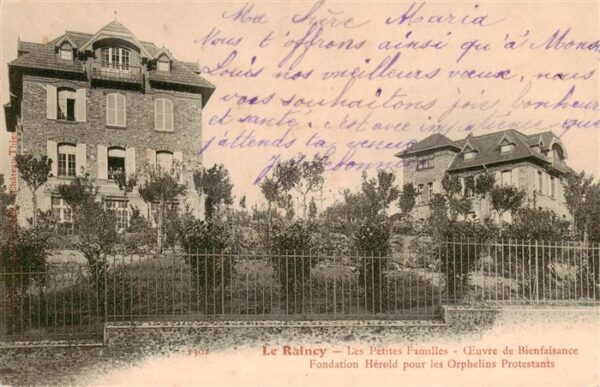 Ma chère Maria
Nous t'offrons ainsi qu'à Mons
Louis nos meilleurs vœux, nous
vous souhaitons joie, bonheur
et santé, c'est avec impatience que
j'attends ta venue
1902
Le Raincy — Les Petites Familles - Œuvre de Bienfaisance
Fondation Hérold pour les Orphelins Protestants